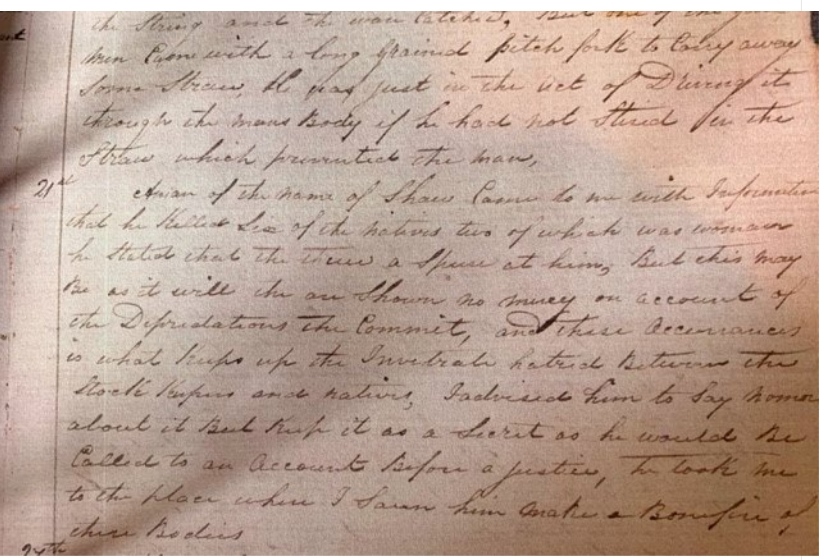 the String and the was Catched, But one of the
men Came with a long Grained pitch fork to Carry away
Some Straw, he was just in the act of Driving it
through the mans Body if he had not Stired in the
Straw which prevented the man,
21st A man of the name of Shaw Came to me with Information
that he Killed Six of the natives two of which was woman
he Stated that the threw a Spear at him, But this may
Be as it will the are Shown no mercy on account of
the Depredations the Commit, and these Occurrances
is what Keeps up the Inveterate hatred Between the
Stock Keepers and natives, I advised him to Say nomore
about it But Keep it as a Secret as he would Be
Called to an Account Before a justice, he took me
to the place where I Sawn him make a Bonefire of
these Bodies
24th